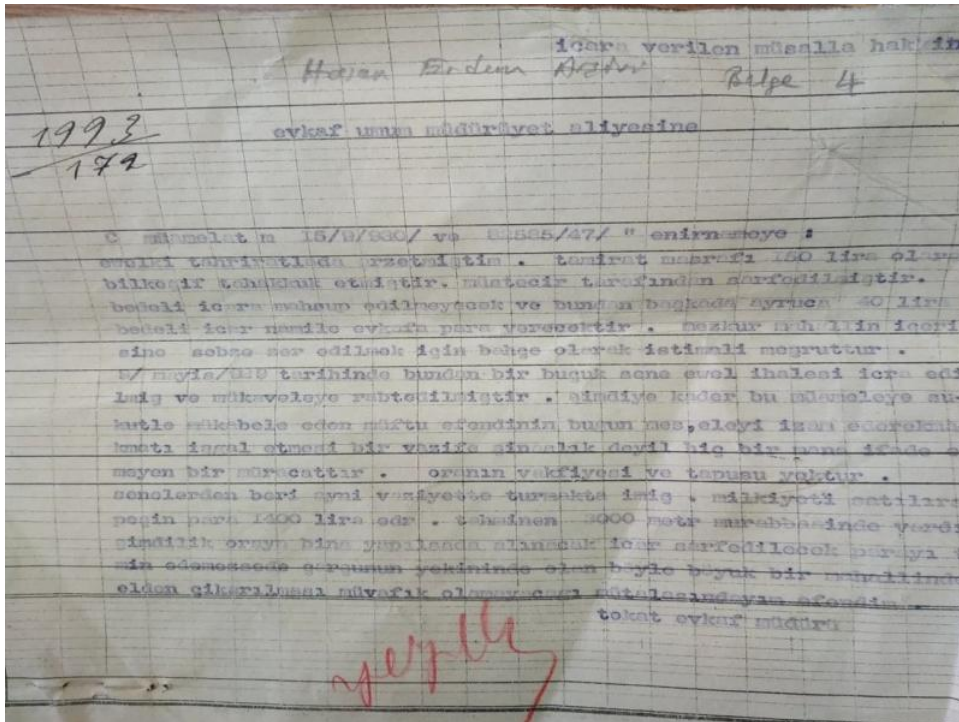 icara verilen müsalla hakkin
Hasan Erdem Belge 4
1993
172
evkaf umum müdürüyet aliyesine
C müamelat m 15/9/930/ ve 82585/47/ " emirnameye :
evelki tahriratlada arzetmiştim . tamirat masrafı 150 lira olara
bilkeşif tahakkuk etmiştir. müstecir tarafından sarfedilmiştir.
bedeli icara mahsup edilmeyecek ve bundan başkada ayruca 40 lira
bedeli icar namile evkafa para verecektir . mezkur mahallin içeri
sine sebze ser edilmek için bahçe olarak istimali meşruttur .
mayis/ tarihinde bundan bir buçuk sene evel ihalesi icra edi
lmiş ve mükaveleye raptedilmiştir . şimdiye kader bu müameleye sü
kutle mükabele eden müftü efendinin bugun mes,eleyi izam ederek
işgal etmesi bir vazife şinaslık deyil hiç bir mana ifade e
mayen bir müracattır . oranın vakfiyesi ve tapusu yoktur .
senelerden beri ayni vaziyette turmakta imiş . milkiyeti satılars
peşin para 1400 lira edr . tahminen 3000 metr murabbasinde
şimdilik oraya bina yapılsada alınacak icar sarfedilecek parayı
min edemessede çarşunun yekininde olan böyle büyük bir mahallinde
elden çikarılması müvafık olamayacağı mütalasındayım efendim .
tokat evkaf müdürü